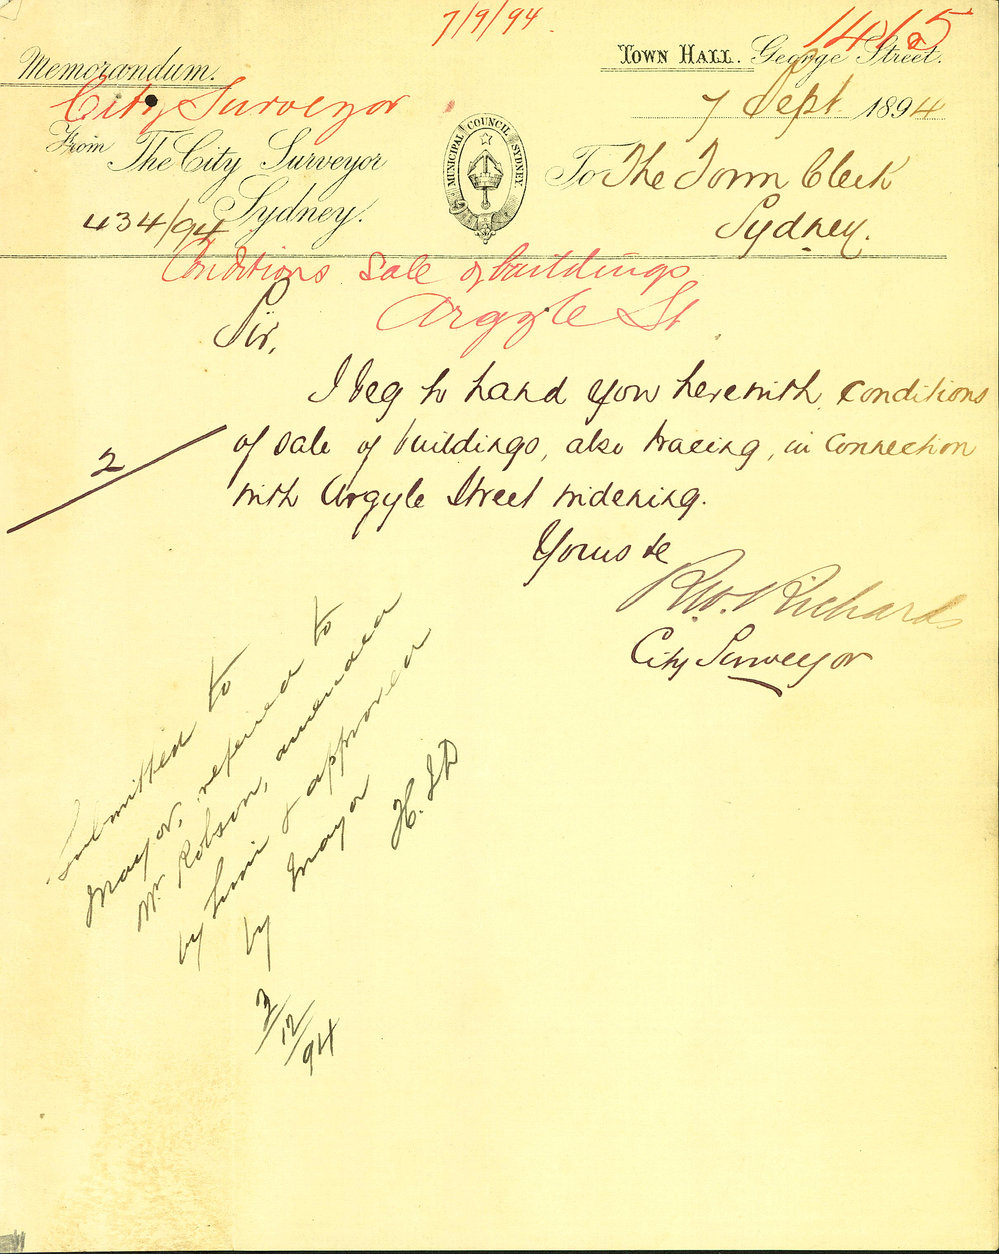 7/9/94
1405
Memorandum.
Town Hall. George Street.
City Surveyor
7 Sept 1894
From The City Surveyor
Sydney.
434/94
MUNICIPAL COUNCIL SYDNEY
To The Town Clerk
Sydney.
Conditions Sale of buildings
Argyle St
Sir,
I beg to hand you herewith, conditions
of sale of buildings, also tracing, in connection
with Argyle Street widening.
2
Yours &c
R.W. Richards
City Surveyor
Submitted to
Mayor, referred to
Mr Robson, amended
by him & approved
by Mayor
H.
3/12/94